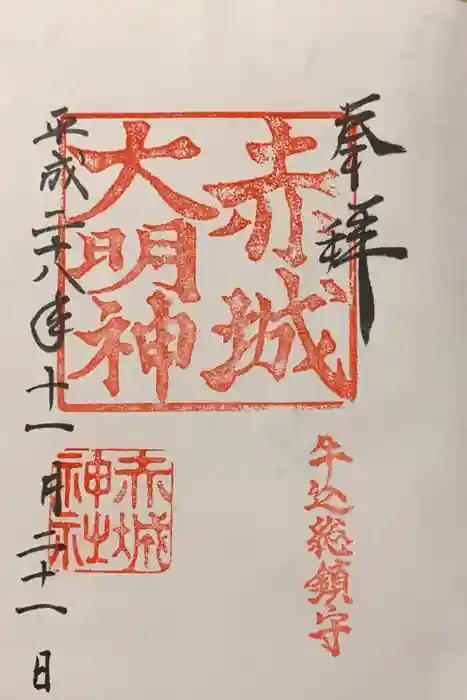 奉拝
牛込総鎮守
赤城
大明神
赤城
神社
平成二十八年十一月二十一日